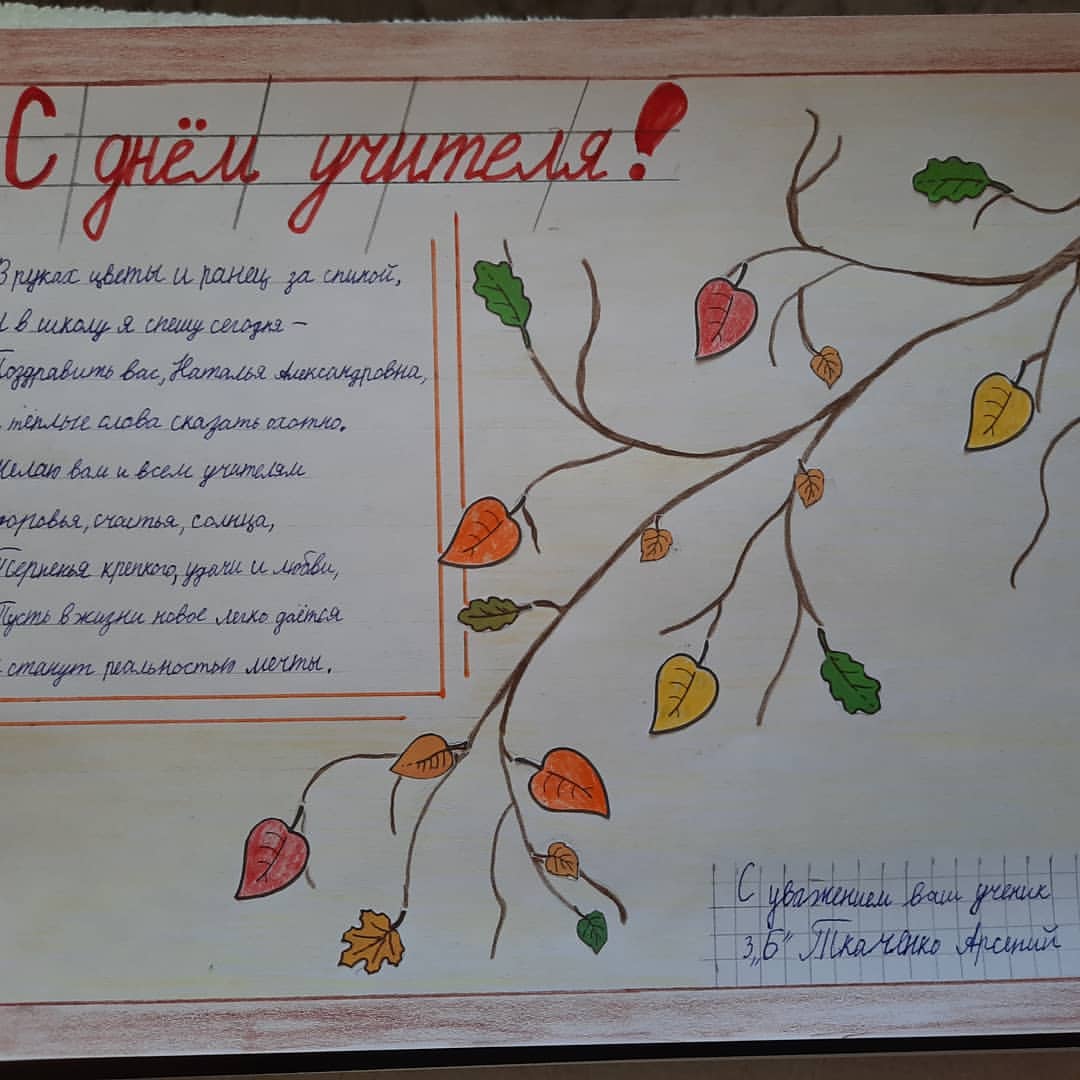 С днём учителя!
В руках цветы и ранец за спиной,
И в школу я спешу сегодня –
Поздравить вас, Наталья Александровна,
тёплые слова сказать охотно.
Желаю вам и всем учителям
доровья, счастья, солнца,
Терпенья крепкого, удачи и любви,
Пусть в жизни новое легко даётся
станут реальностью мечты.
С уважением ваш ученик
3„Б“ Ткаченко Арсений